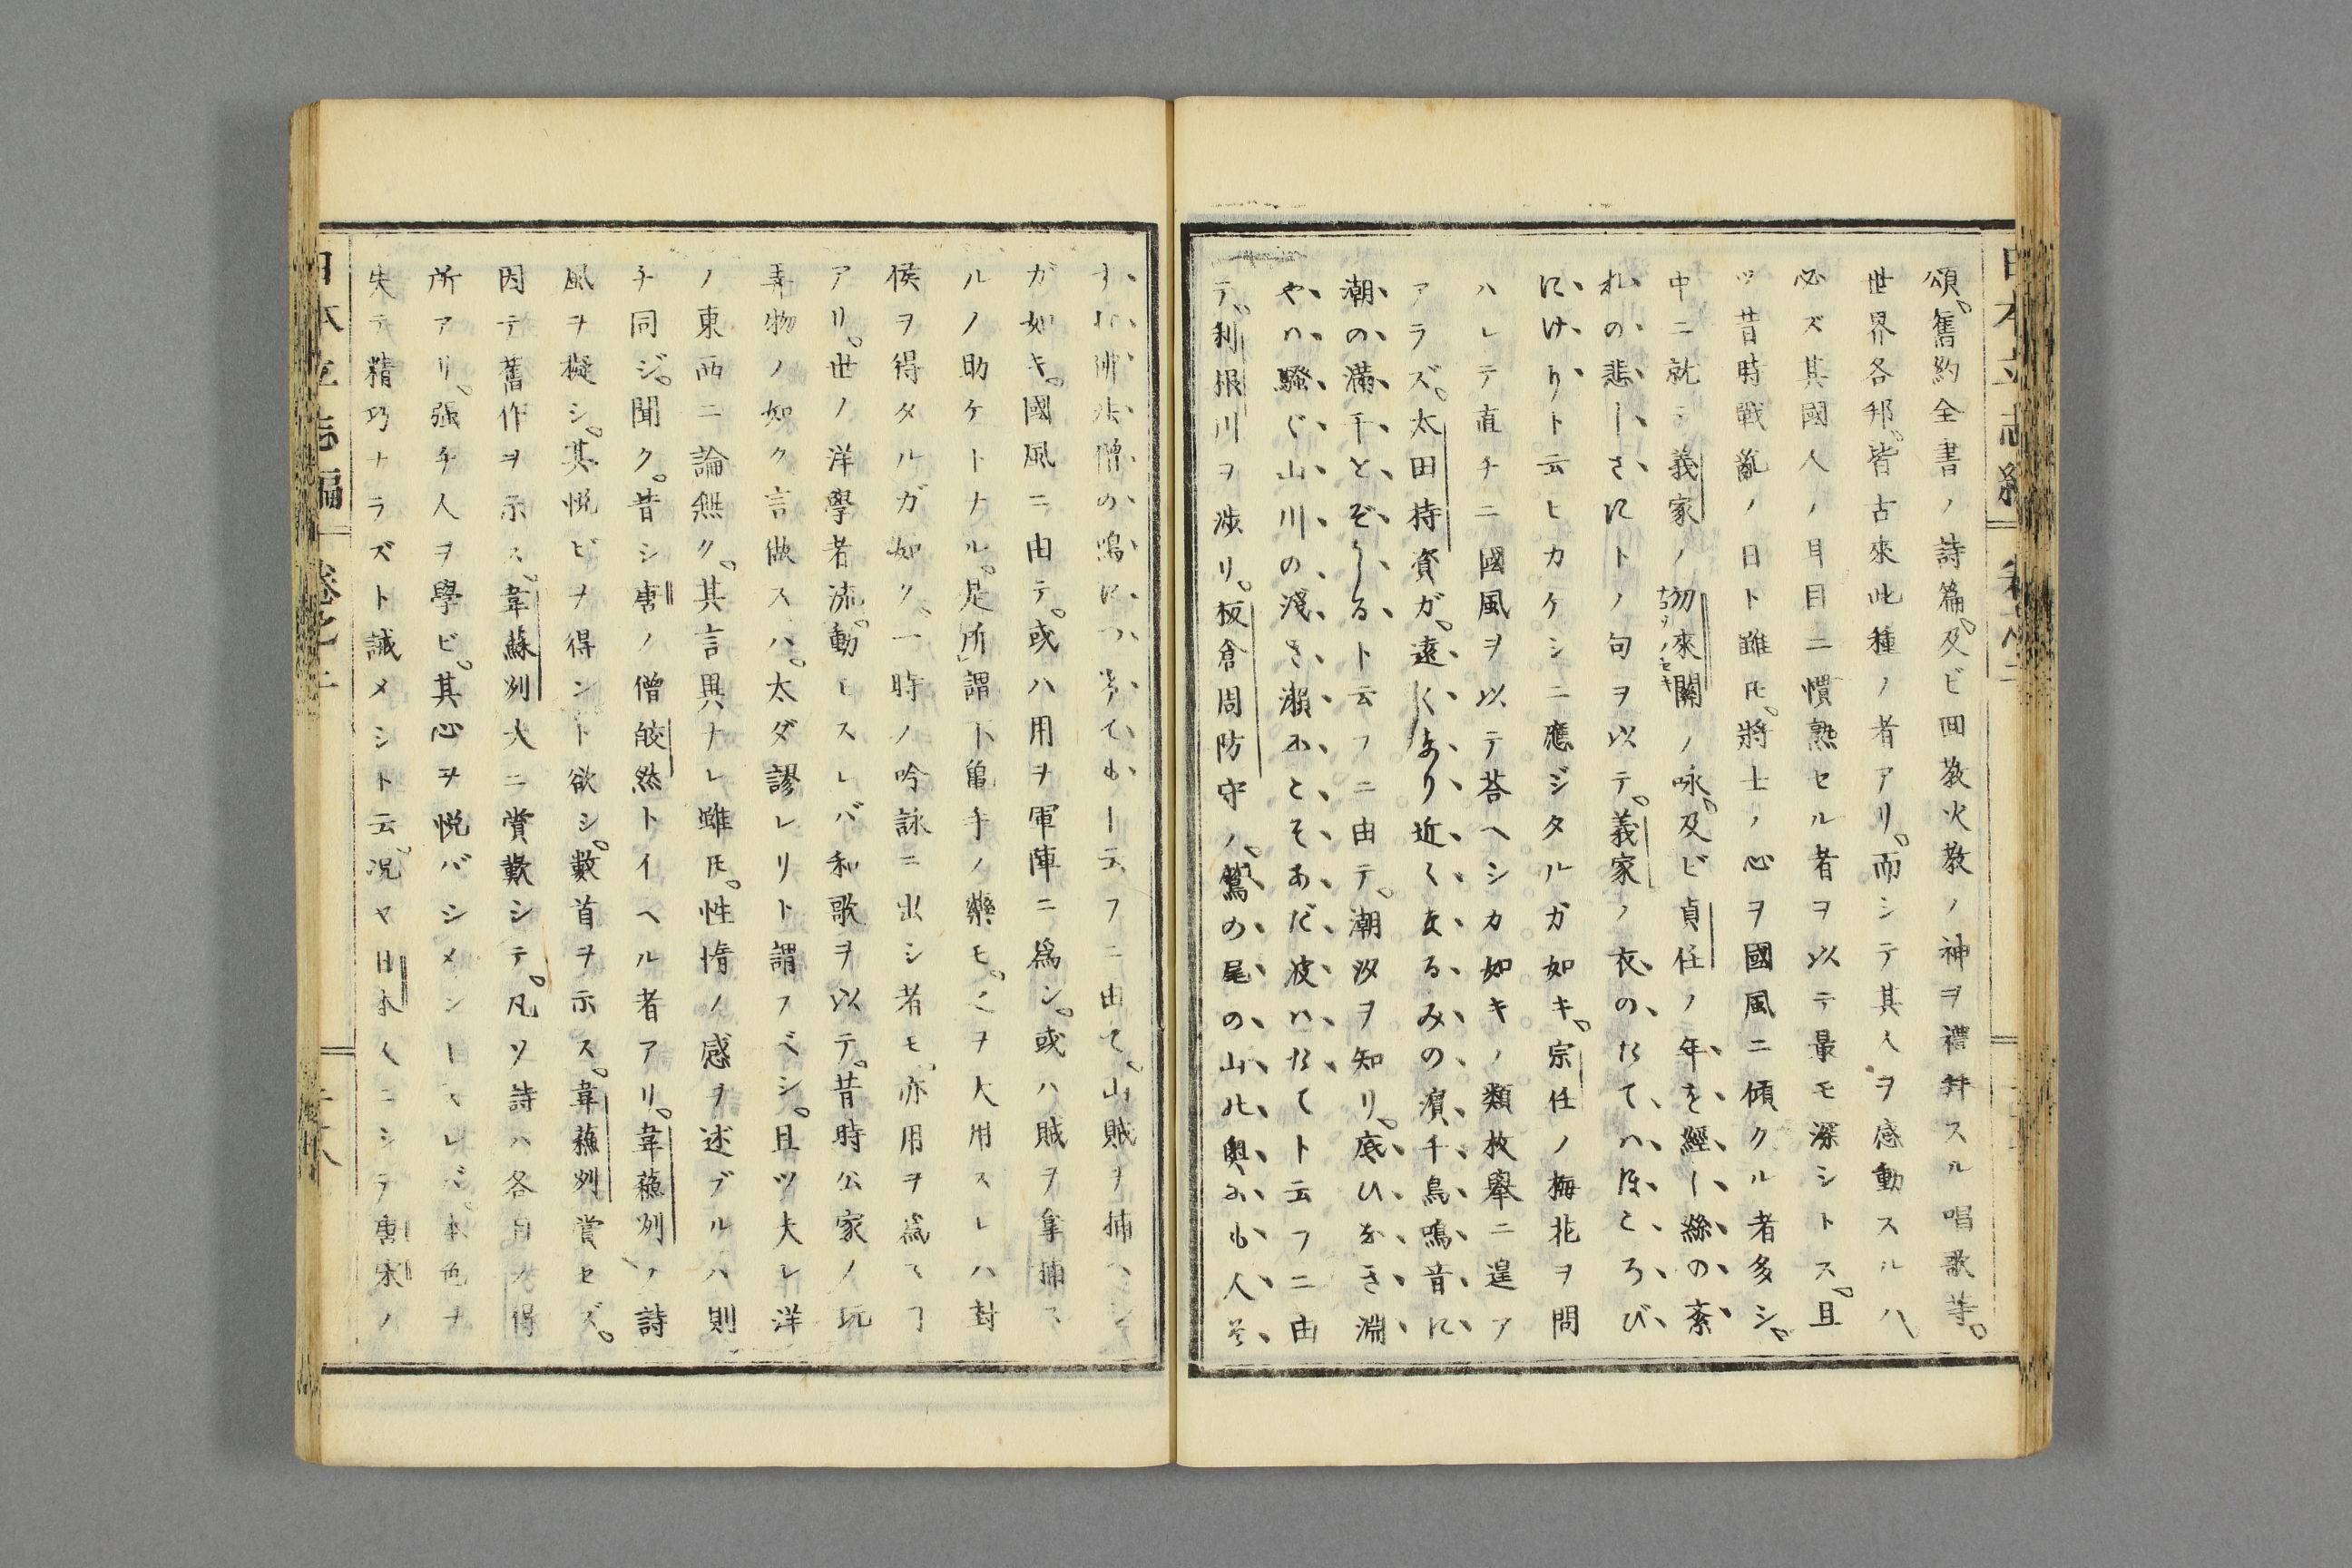 頌。舊約全書ノ詩篇。及ビ回教火教ノ神ヲ禮拜スル唱歌等。
世界各邦。皆古來此種ノ者アリ。而シテ其人ヲ感動スルハ
必ズ其國人ノ耳目ニ慣熟セル者ヲ以テ最モ深シトス。且
ツ昔時戰亂ノ日ト雖𪜈。將士ノ心ヲ國風ニ傾クル者多シ。
中ニ就テ義家ノ勿來關ノ咏。及ビ貞任ノ年を經し絲の紊
れの悲しさにトノ句ヲ以テ。義家ノ衣のたてハほころび
にけりト云ヒカケシニ應ジタルガ如キ。宗任ノ梅花ヲ問
ハレテ直チニ國風ヲ以テ荅ヘシカ如キノ類枚擧ニ遑ア
アラズ。太田持資ガ。遠くあり近くなるみの濱千鳥鳴音に
潮の滿干とぞしるト云フニ由テ。潮汐ヲ知リ。底ひなき淵
やハ騷ぐ山川の淺き瀬にこそあだ波ハたてト云フニ由
テ。利根川ヲ渉リ。板倉周防守ノ。鷲の尾の山の奥にも人そ
ガ如キ。國風ニ由テ。或ハ用ヲ軍陣ニ爲シ。或ハ賊ヲ拿捕ス
ルノ助ケトナル。是所謂不亀手ノ藥モ。之ヲ大用スレハ封
侯ヲ得タルガ如ク。一時ノ吟詠ニ出シ者モ。亦用ヲ爲スヿ
アリ。世ノ洋學者流。動モスレバ和歌ヲ以テ。昔時公家ノ玩
弄物ノ如ク言做スハ。太ダ謬レリト謂フベシ。且ツ夫レ洋
ノ東西ニ論無ク。其言異ナレ雖𪜈。性情ノ感ヲ述ブルハ則
チ同ジ。聞ク。昔シ唐ノ僧皎然トイヘル者アリ。韋蘓州ノ詩
風ヲ擬シ。其悦ビヲ得ント欲シ。數首ヲ示ス。韋蘓州賞セズ。
因テ舊作ヲ示ス。韋蘇州大ニ賞歎シテ。凡ソ詩ハ各自ノ得
所アリ。強チ人ヲ學ビ。其心ヲ悦バシメントスレバ。本色ヲ
失テ精巧ナラズト誡メシト云。况ヤ日本人ニシテ唐宋ノ
日本立志編 卷之一